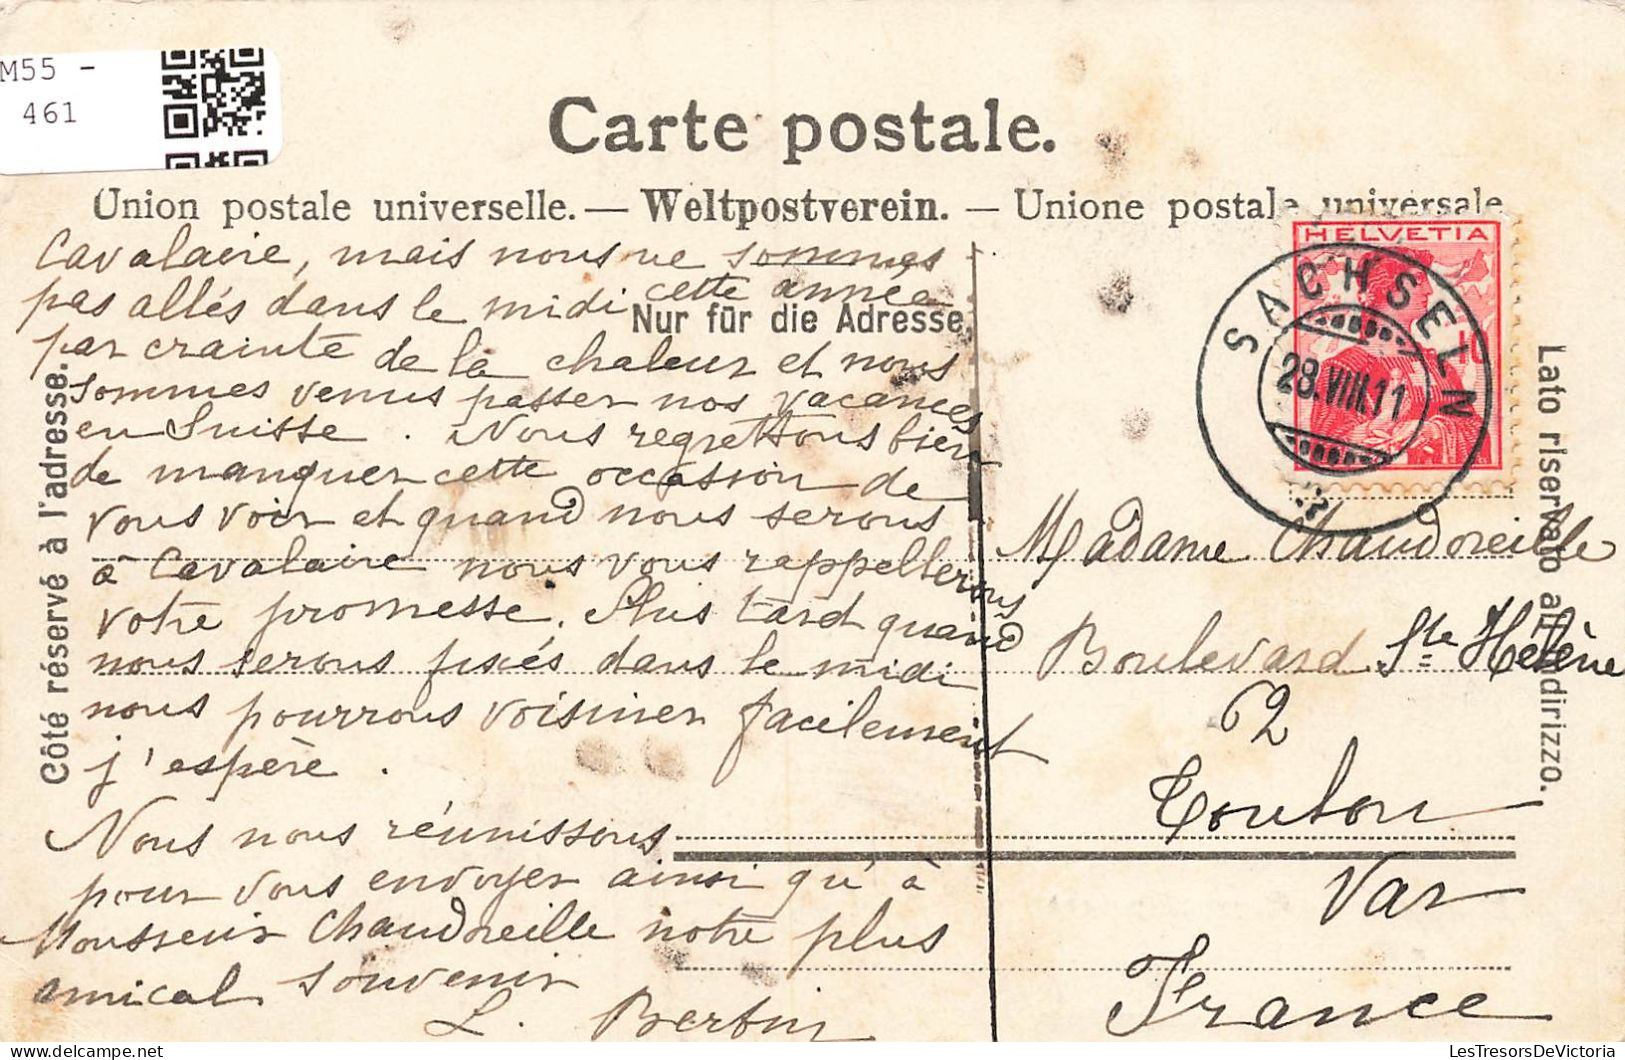 M55 -
461
Carte postale.
Union postale universelle. — Weltpostverein. — Unione postale universale
HELVETIA
10
SACHSELN
28.VIII.11
Nur für die Adresse.
Côté réservé à l'adresse.
Lato riservato all'indirizzo.
Cavalaire, mais nous ne sommes
pas allés dans le midi cette année
par crainte de la chaleur et nous
sommes venus passer nos vacances
en Suisse. Nous regrettons bien
de manquer cette occasion de
vous voir et quand nous serons
à Cavalaire nous vous rappellerons
votre promesse. Plus tard quand
nous serons fixés dans le midi
nous pourrons voisiner facilement
j'espère.
Nous nous réunissons
pour vous envoyer ainsi qu'à
Monsieur Chaudreille notre plus
amical souvenir
L. Bertin
Madame Chaudoreille
Boulevard Ste Hélène
62
Toulon
Var
France
LesTresorsDeVictoria